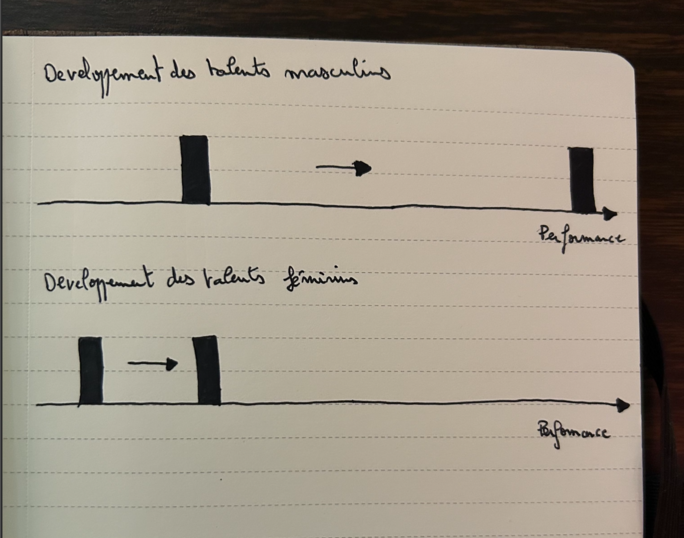 Developpement des talents masculins
Performance
Developpement des talents féminins
Performance